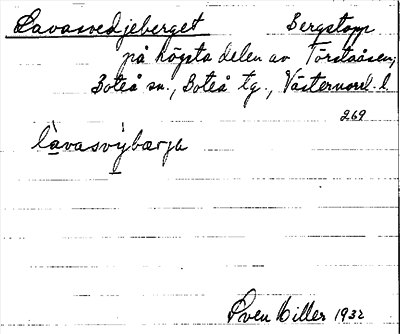 Lavasvedjeberget Bergstopp
på högsta delen av Törstaåsen,
Boteå sn., Boteå tg., Västernorrl. l
269
làvasvýbærja
Sven Hiller 1932